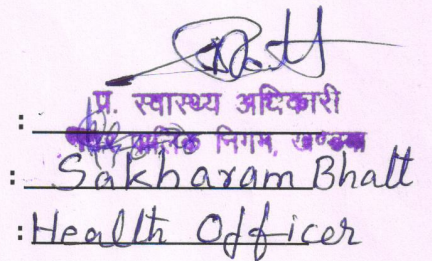 प्र. स्वास्थ्य अधिकारी
: निगम, खण्डवा
: Sakharam Bhatt
: Health Officer